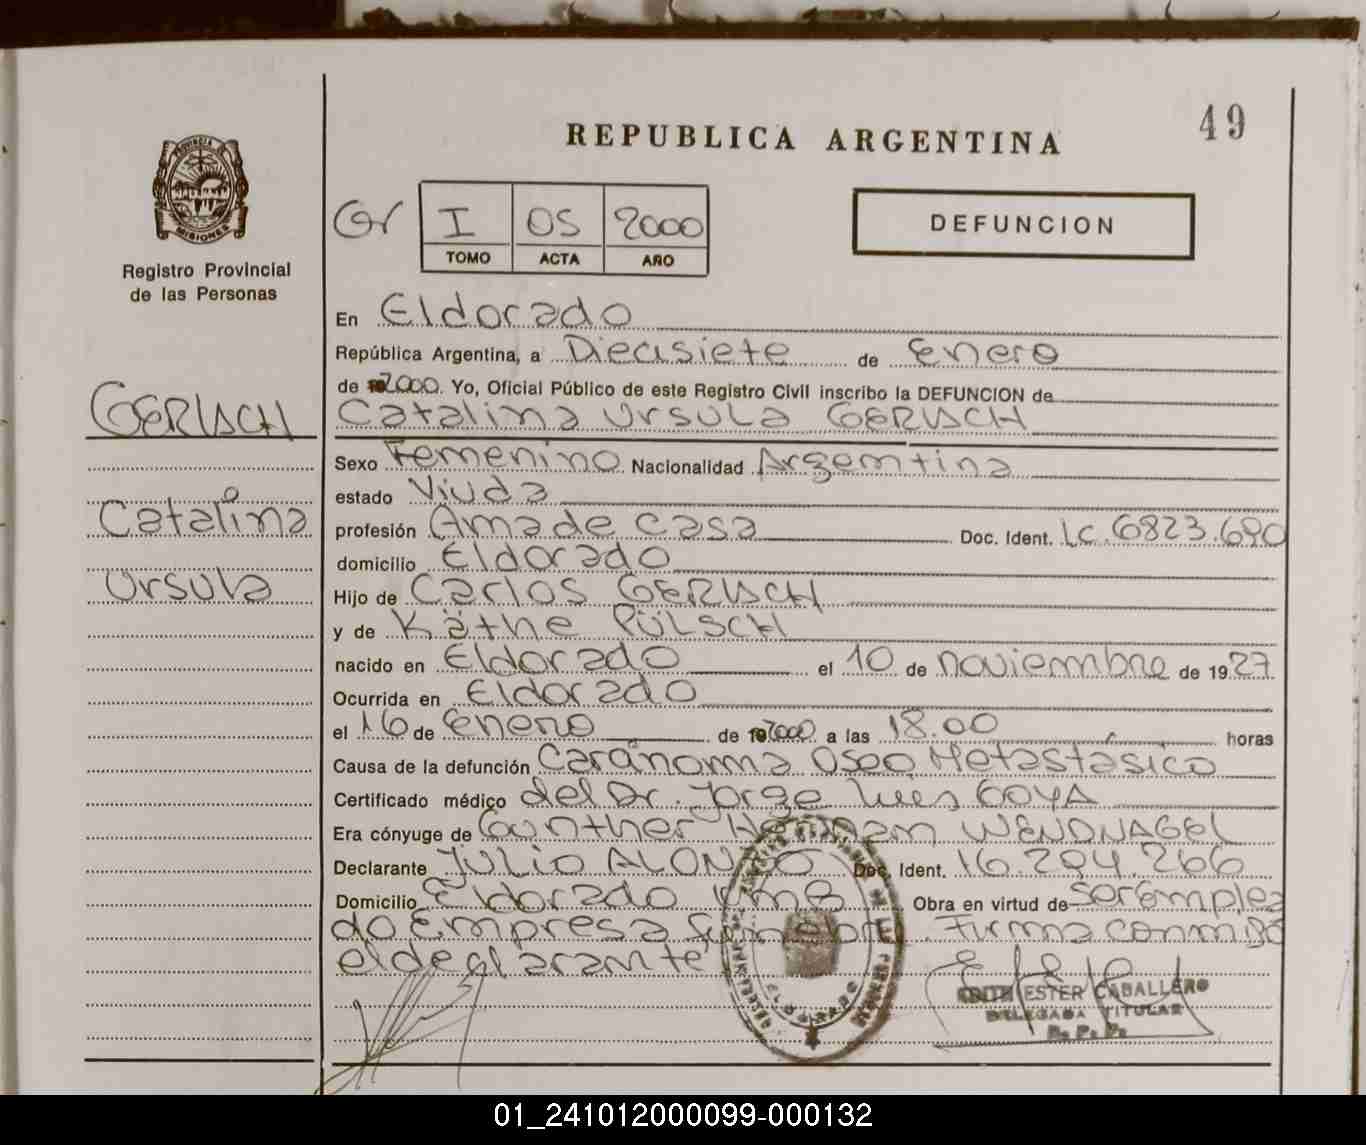 49
REPUBLICA ARGENTINA
PROVINCIA DE
MISIONES
Registro Provincial
de las Personas
Gr I 05 2000
TOMO ACTA AÑO
DEFUNCION
En Eldorado
República Argentina, a Diecisiete de Enero
de 2000. Yo, Oficial Público de este Registro Civil inscribo la DEFUNCION de
Catalina Ursula GERLACH
GERLACH
Catalina
Ursula
Sexo Femenino Nacionalidad Argentina
estado Viuda
profesión Ama de casa Doc. Ident. LC. 6823.690
domicilio Eldorado
Hijo de Carlos GERLACH
y de Käthe PÜLSCH
nacido en Eldorado el 10 de noviembre de 1927
Ocurrida en Eldorado
el 16 de Enero de 2000 a las 18.00 horas
Causa de la defunción Carcinoma Oseo Metastásico
Certificado médico del Dr. Jorge Luis GOYA
Era cónyuge de Gunther Hermann WENDNAGEL
Declarante JULIO ALONSO Doc. Ident. 16.294.266
Domicilio Eldorado Km8 Obra en virtud de ser Emplea
do Empresa funebre. Firma conmigo
el declarante
EDITH ESTER CABALLERO
DELEGADA TITULAR
R. P. P.
01_241012000099-000132